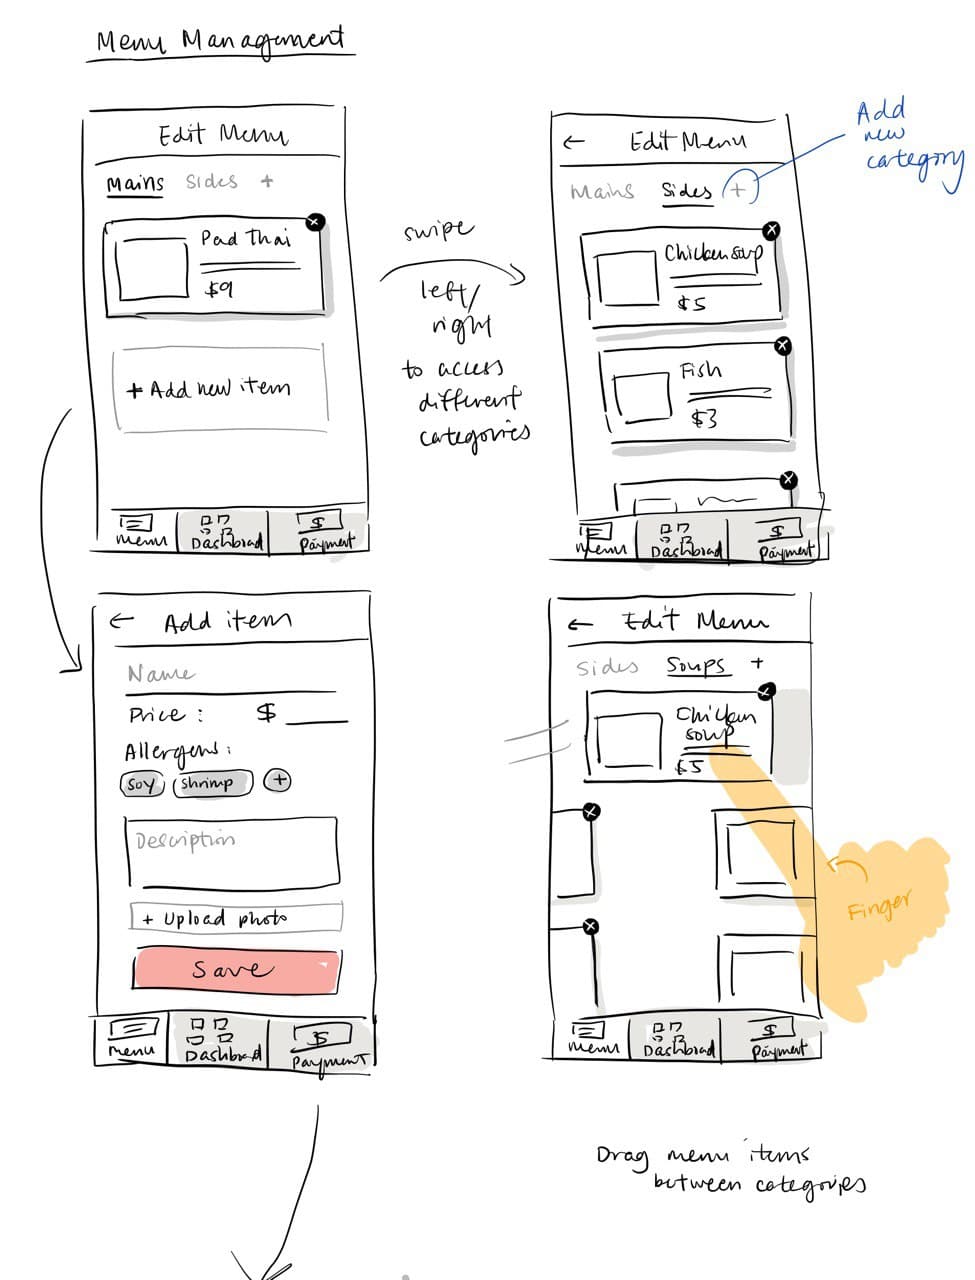 Menu Management
Edit Menu
Mains Sides +
Pad Thai
$9
+ Add new item
Menu Dashbrad Payment
swipe
left/
right
to access
different
categories
← Edit Menu
Mains Sides +
Chicken soup
$5
Fish
$3
Menu Dashbrad Payment
Add
new
category
← Add item
Name
Price : $
Allergens :
Soy Shrimp +
Description
+ Upload photo
Save
Menu Dashbrad Payment
← Edit Menu
Sides Soups +
Chicken
soup
$5
Finger
Menu Dashbrad Payment
Drag menu items
between categories